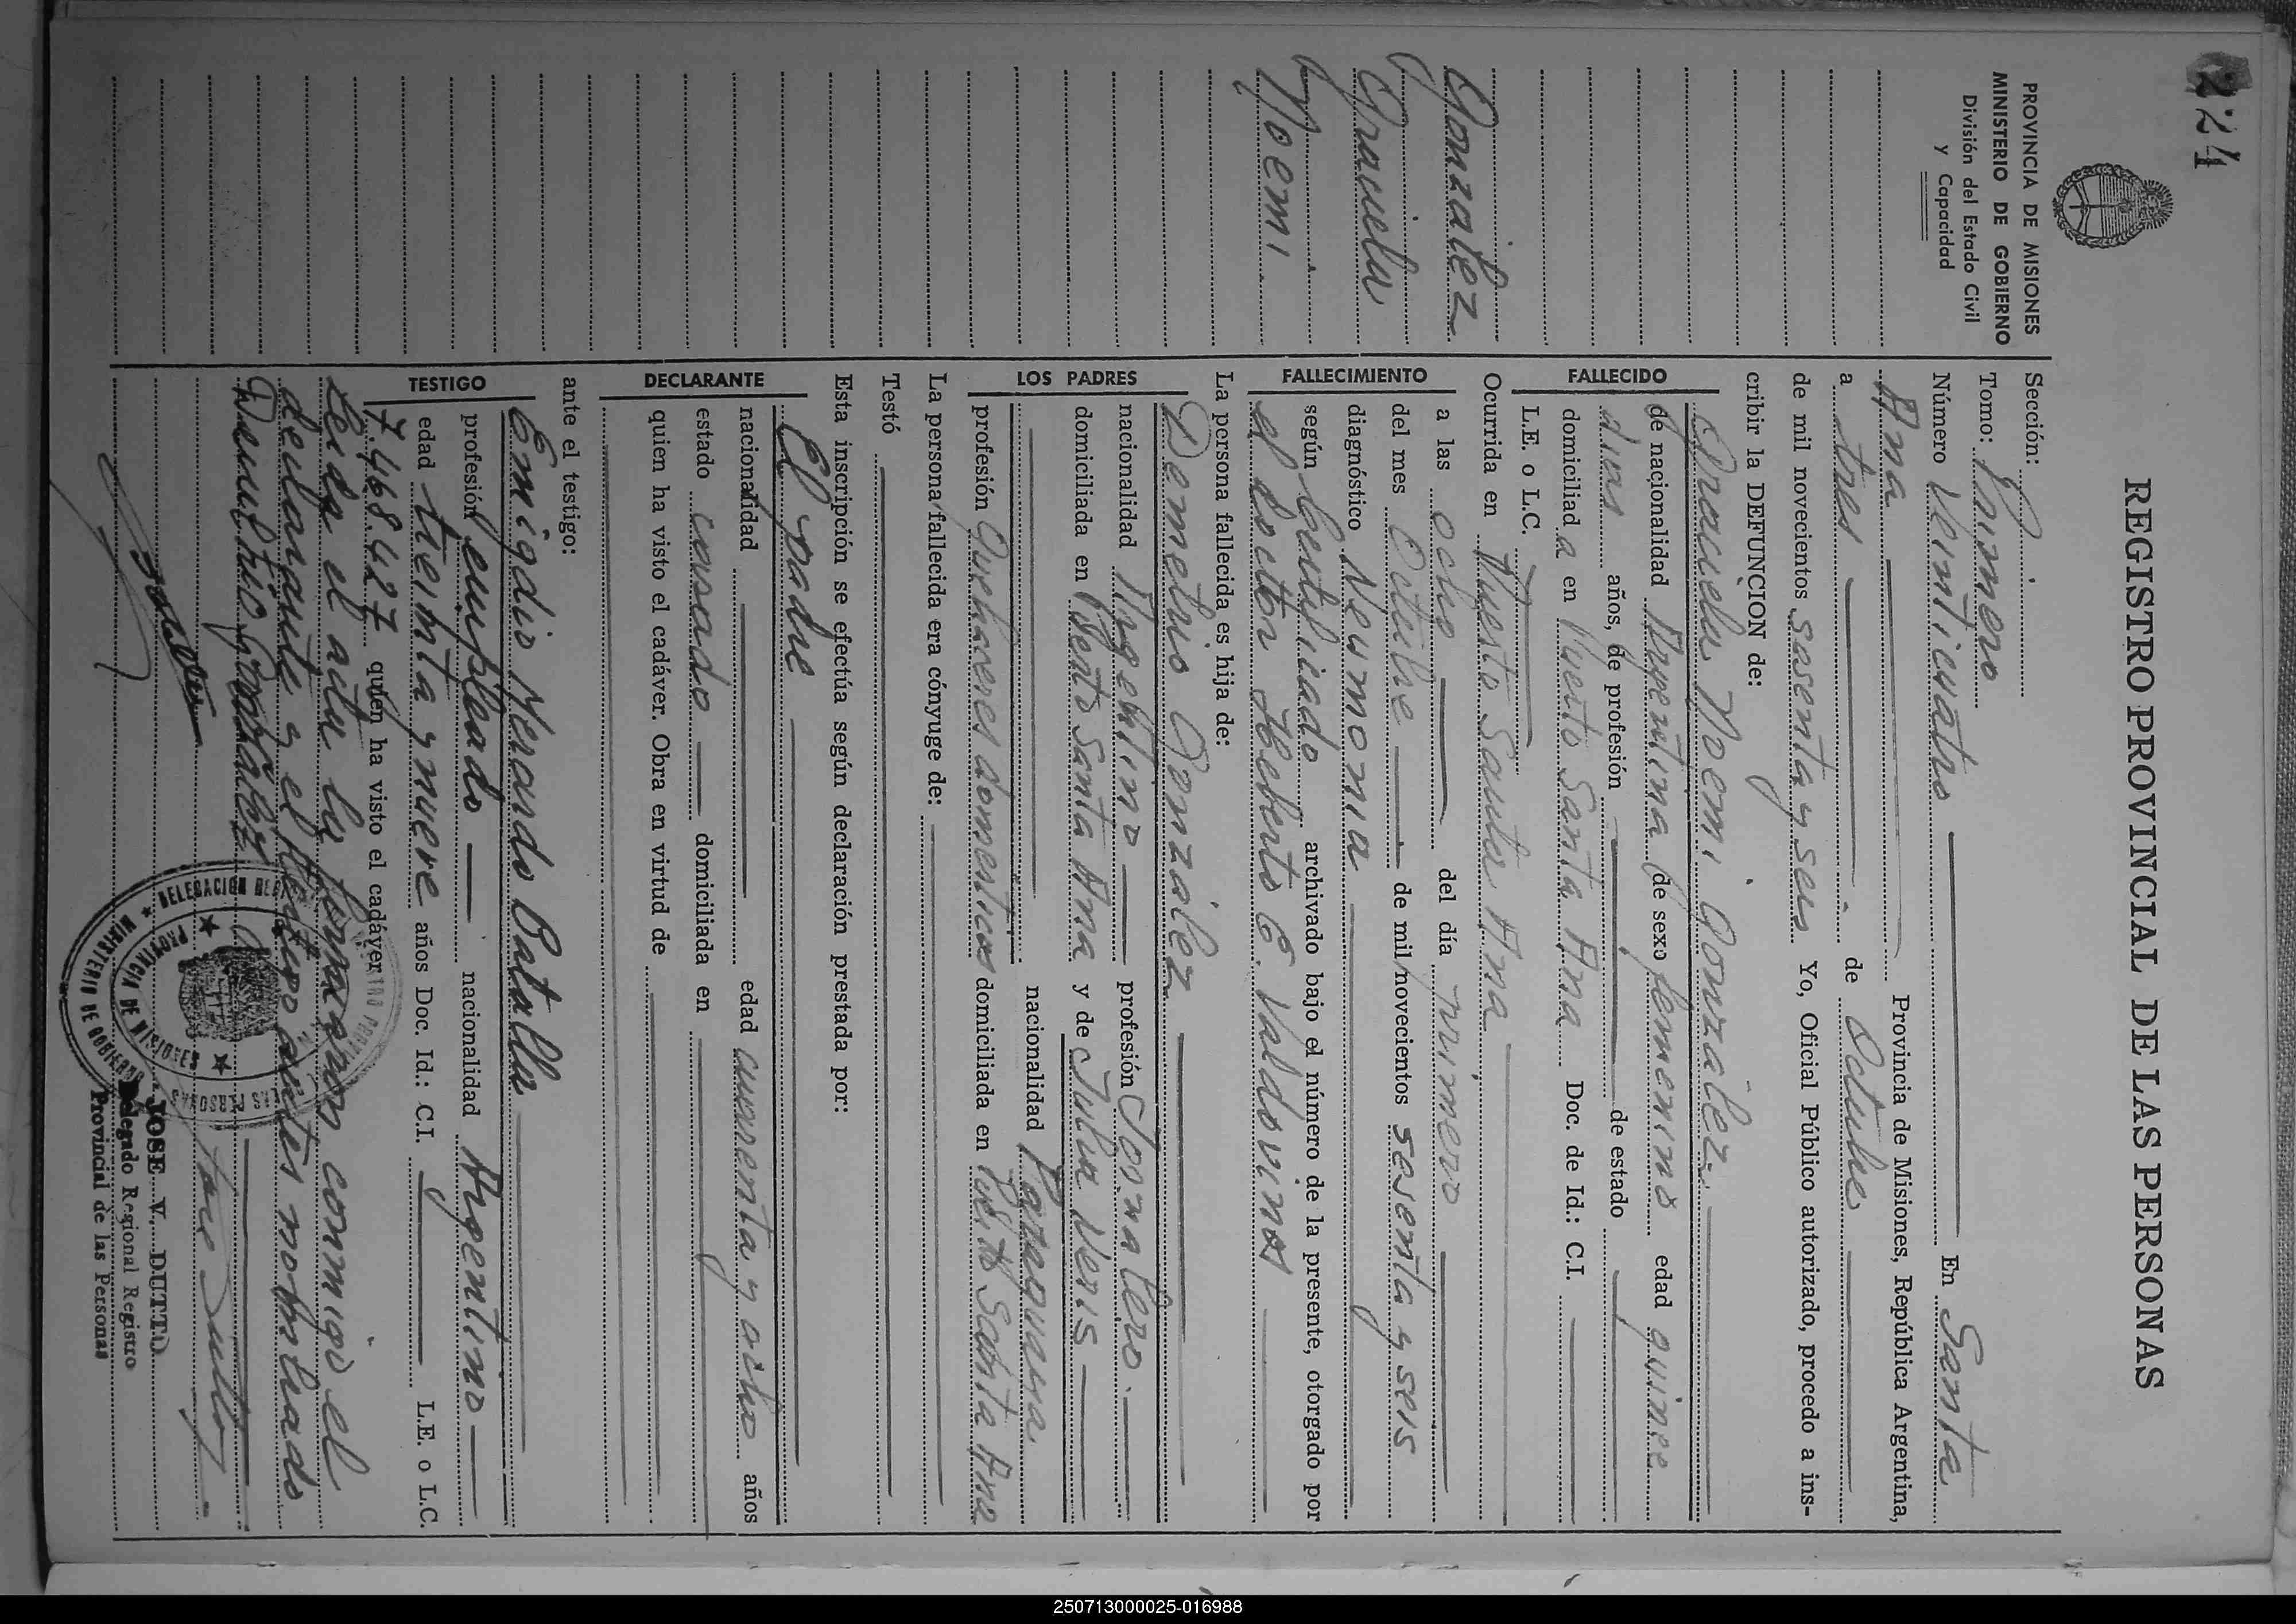 224
PROVINCIA DE MISIONES
MINISTERIO DE GOBIERNO
División del Estado Civil
y Capacidad
Gonzalez
Graciela
Noemi
REGISTRO PROVINCIAL DE LAS PERSONAS
Sección:
Tomo: Primero
Número Veinticuatro En Santa
Ana Provincia de Misiones, República Argentina,
a tres de Octubre
de mil novecientos sesenta y seis Yo, Oficial Público autorizado, procedo a ins-
cribir la DEFUNCION de:
FALLECIDO
Graciela Noemi Gonzalez
de nacionalidad Argentina de sexo femenino edad quince
dias años, de profesión de estado
domiciliad a en Puerto Santa Ana Doc. de Id.: C.I.
L.E. o L.C.
Ocurrida en Puerto Santa Ana
FALLECIMIENTO
a las ocho del día primero
del mes Octubre de mil novecientos sesenta y seis
diagnóstico Neumonia
según Certificado archivado bajo el número de la presente, otorgado por
el doctor Heberto E. Valdovinos
La persona fallecida es hija de:
LOS PADRES
Demetrio Gonzalez
nacionalidad Argentino profesión Jornalero
domiciliada en Pserto Santa Ana y de Julia Veris
nacionalidad Paraguaya
profesión Quehaceres domesticos domiciliada en Pserto Santa Ana
La persona fallecida era cónyuge de:
Testó
Esta inscripción se efectúa según declaración prestada por:
DECLARANTE
El padre
nacionalidad edad cuarenta y ocho años
estado casado domiciliada en
quien ha visto el cadáver. Obra en virtud de
ante el testigo:
TESTIGO
Emigdio Nerardo Batalla
profesión empleado nacionalidad Argentino
edad treinta y nueve años Doc. Id.: C.I. L.E. o L.C.
7.468.427 quien ha visto el cadáver
Leida el acta la firmaron conmigo el
declarante y el testigo antes nombrado
Demetrio Gonzalez
DELEGACION REGISTRO PROVINCIAL DE LAS PERSONAS
MINISTERIO DE GOBIERNO
PROVINCIA DE MISIONES
JOSE V. DUTTO
Delegado Regional Registro
Provincial de las Personas
250713000025-016988